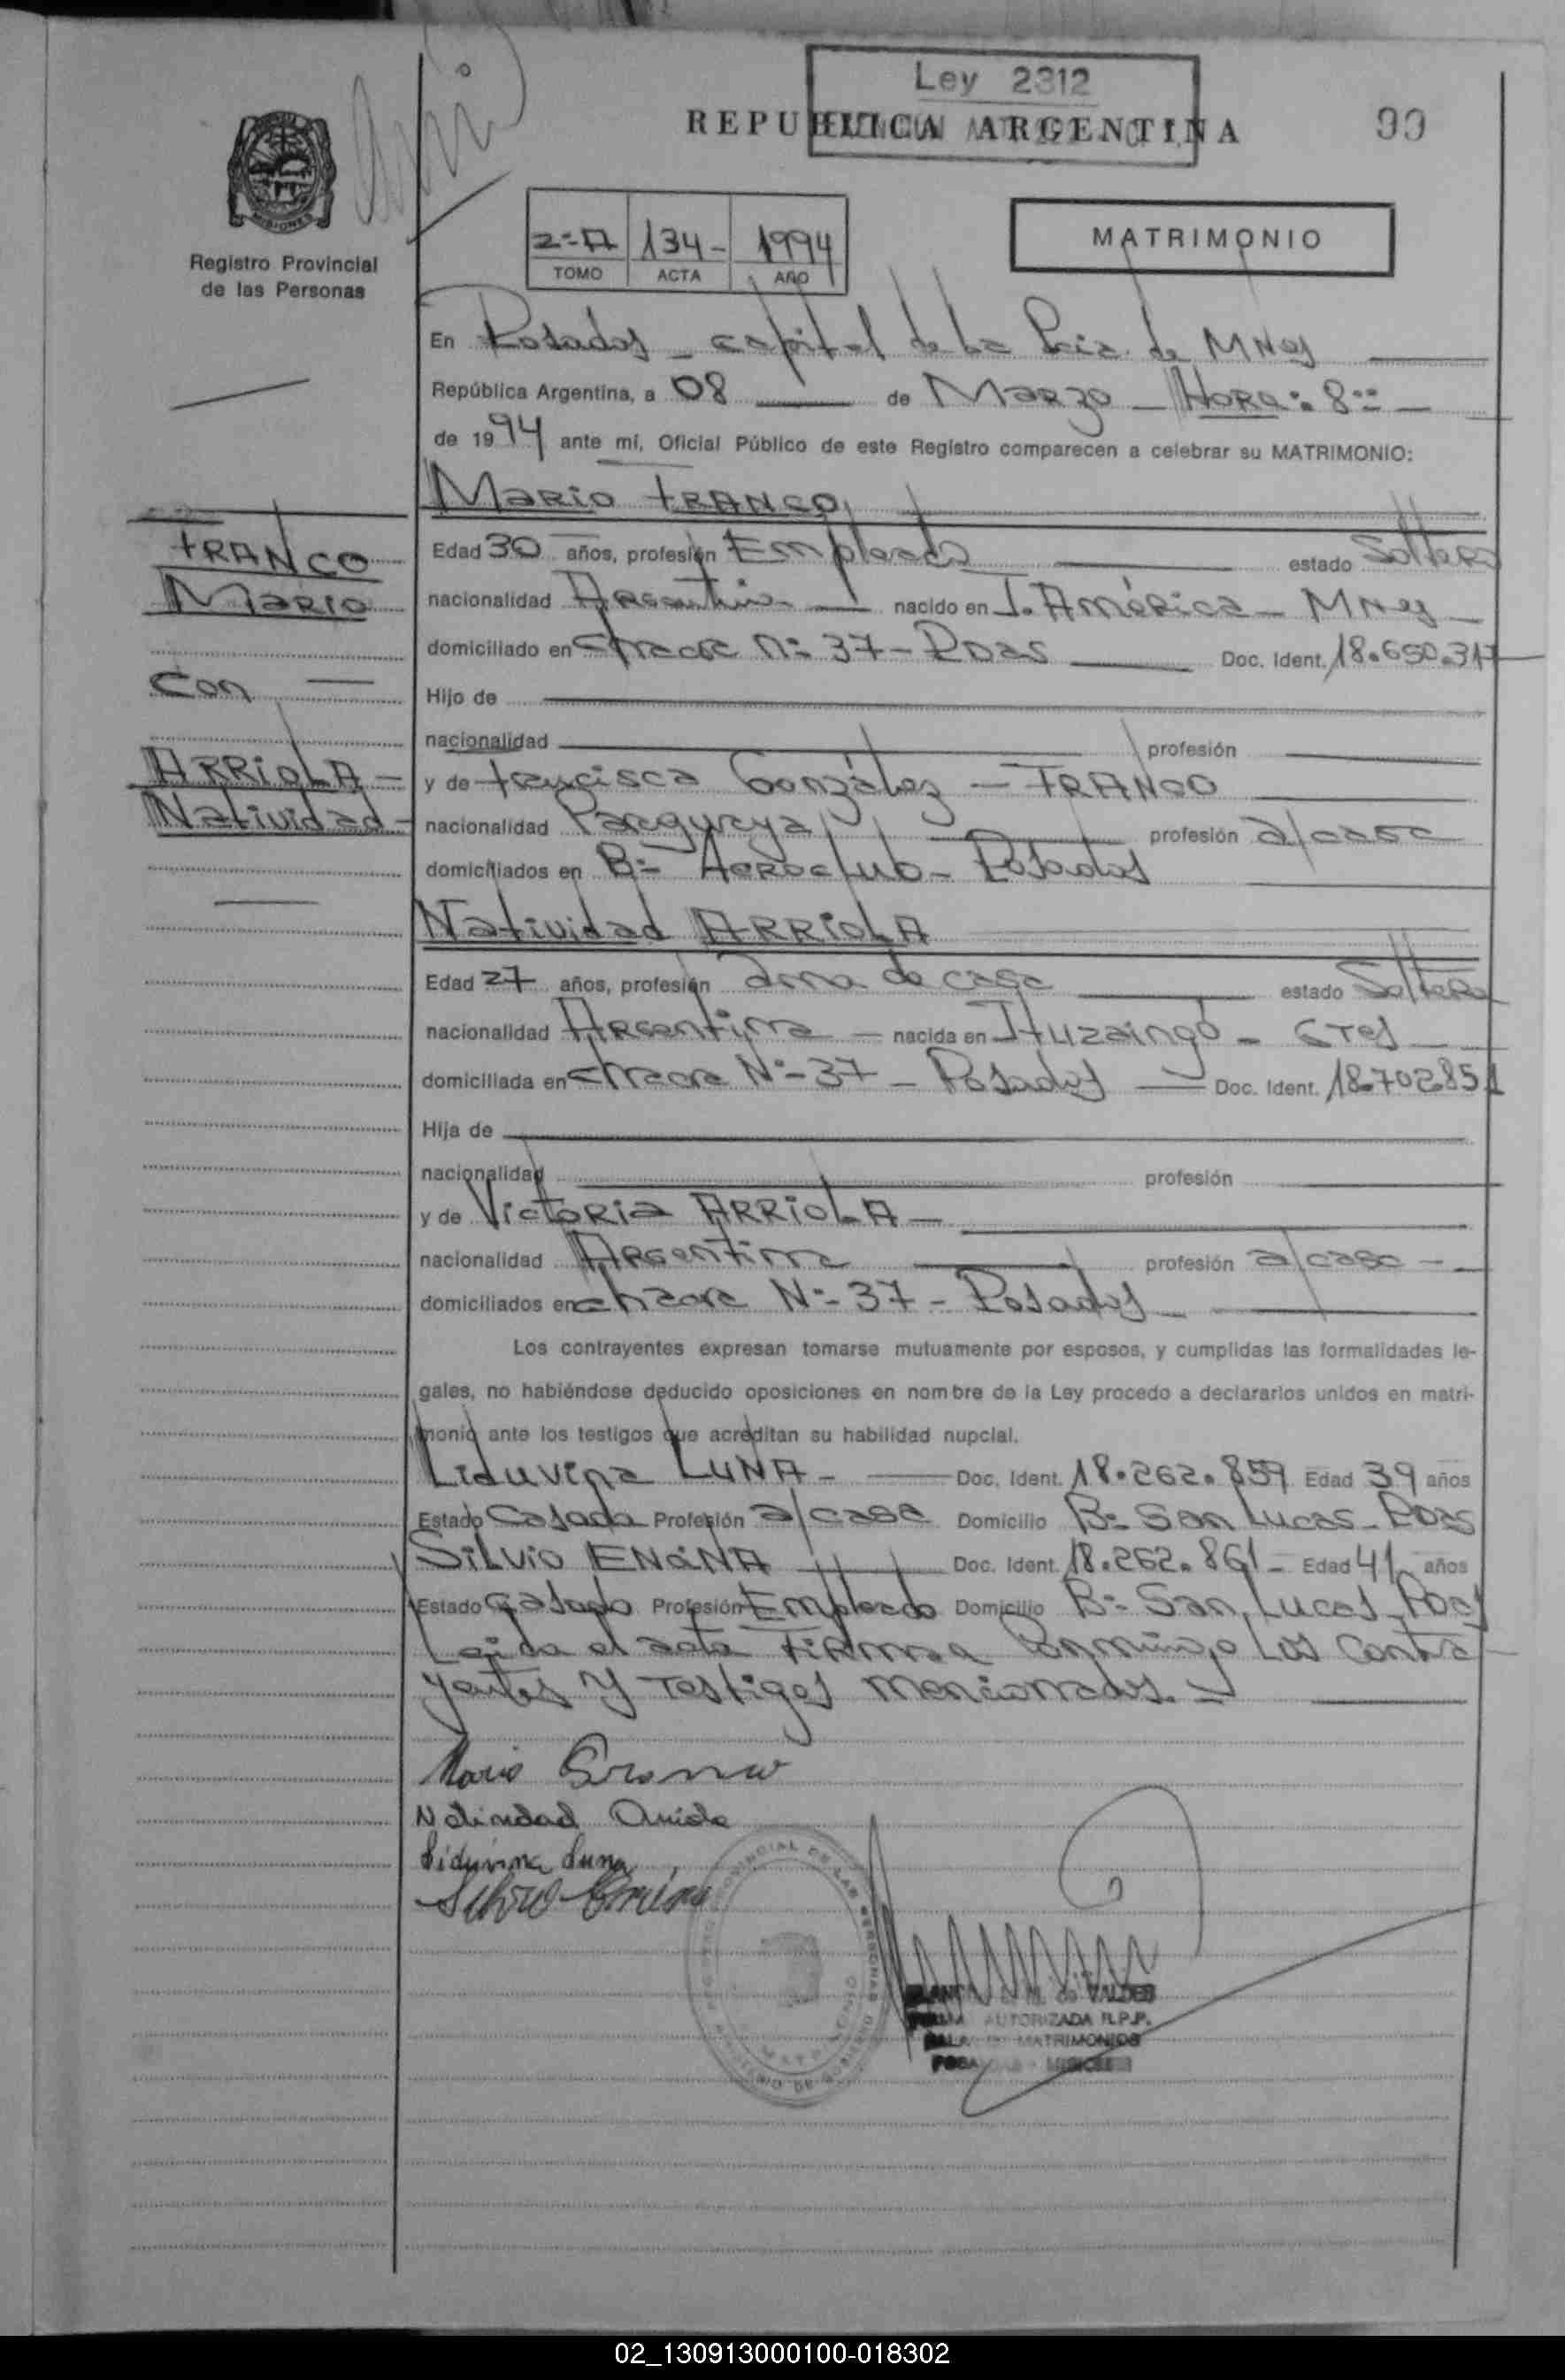 Ley 2312
REPUBLICA ARGENTINA
99
Registro Provincial
de las Personas
MISIONES
2º-A 134- 1994
TOMO ACTA AÑO
MATRIMONIO
En Posadas - capital de la Pcia. de MNes
República Argentina, a 08 de Marzo - HORA: 8
de 1994 ante mí, Oficial Público de este Registro comparecen a celebrar su MATRIMONIO:
MARIO FRANCO
FRANCO
Mario
Con
ARRIOLA -
Natividad -
Edad 30 años, profesión Empleado estado Soltero
nacionalidad Argentina nacido en J. América - MNes
domiciliado en chacra Nº 37 - Pdas Doc. Ident. 18.650.317
Hijo de
nacionalidad profesión
y de Francisca González - FRANCO
nacionalidad Paraguaya profesión a/casa
domiciliados en Bº Aeroclub - Posadas
Natividad ARRIOLA
Edad 27 años, profesión ama de casa estado Soltera
nacionalidad Argentina - nacida en Ituzaingó - Ctes
domiciliada en chacra Nº 37 - Posadas Doc. Ident. 18.702.851
Hija de
nacionalidad profesión
y de Victoria ARRIOLA -
nacionalidad Argentina profesión a/casa -
domiciliados en chacra Nº 37 - Posadas
Los contrayentes expresan tomarse mutuamente por esposos, y cumplidas las formalidades le-
gales, no habiéndose deducido oposiciones en nombre de la Ley procedo a declararlos unidos en matri-
monio ante los testigos que acreditan su habilidad nupcial.
Liduvina LUNA - Doc. Ident. 18.262.859 Edad 39 años
Estado Casada Profesión a/casa Domicilio Bº San Lucas - Pdas
Silvio ENCINA Doc. Ident. 18.262.861 - Edad 41 años
Estado Casado Profesión Empleado Domicilio Bº San Lucas - Pdas
Leída el acta Firman conmigo los contra
yentes y testigos mencionados. -
Mario Franco
Natividad Arriola
Liduvina Luna
Silvio Encina
VALDES
AUTORIZADA R.P.P.
MATRIMONIOS
02_130913000100-018302